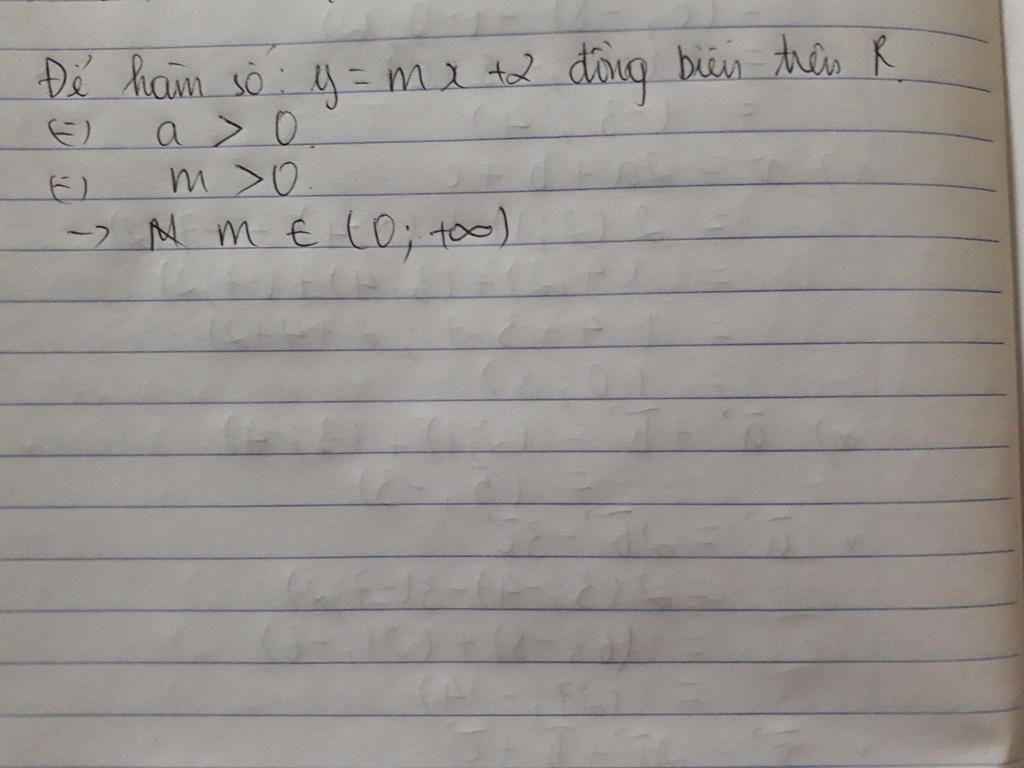 Để hàm số: y = mx +2 đồng biến trên R.
⇔ a > 0.
⇔ m > 0.
→ m ∈ (0; +∞)